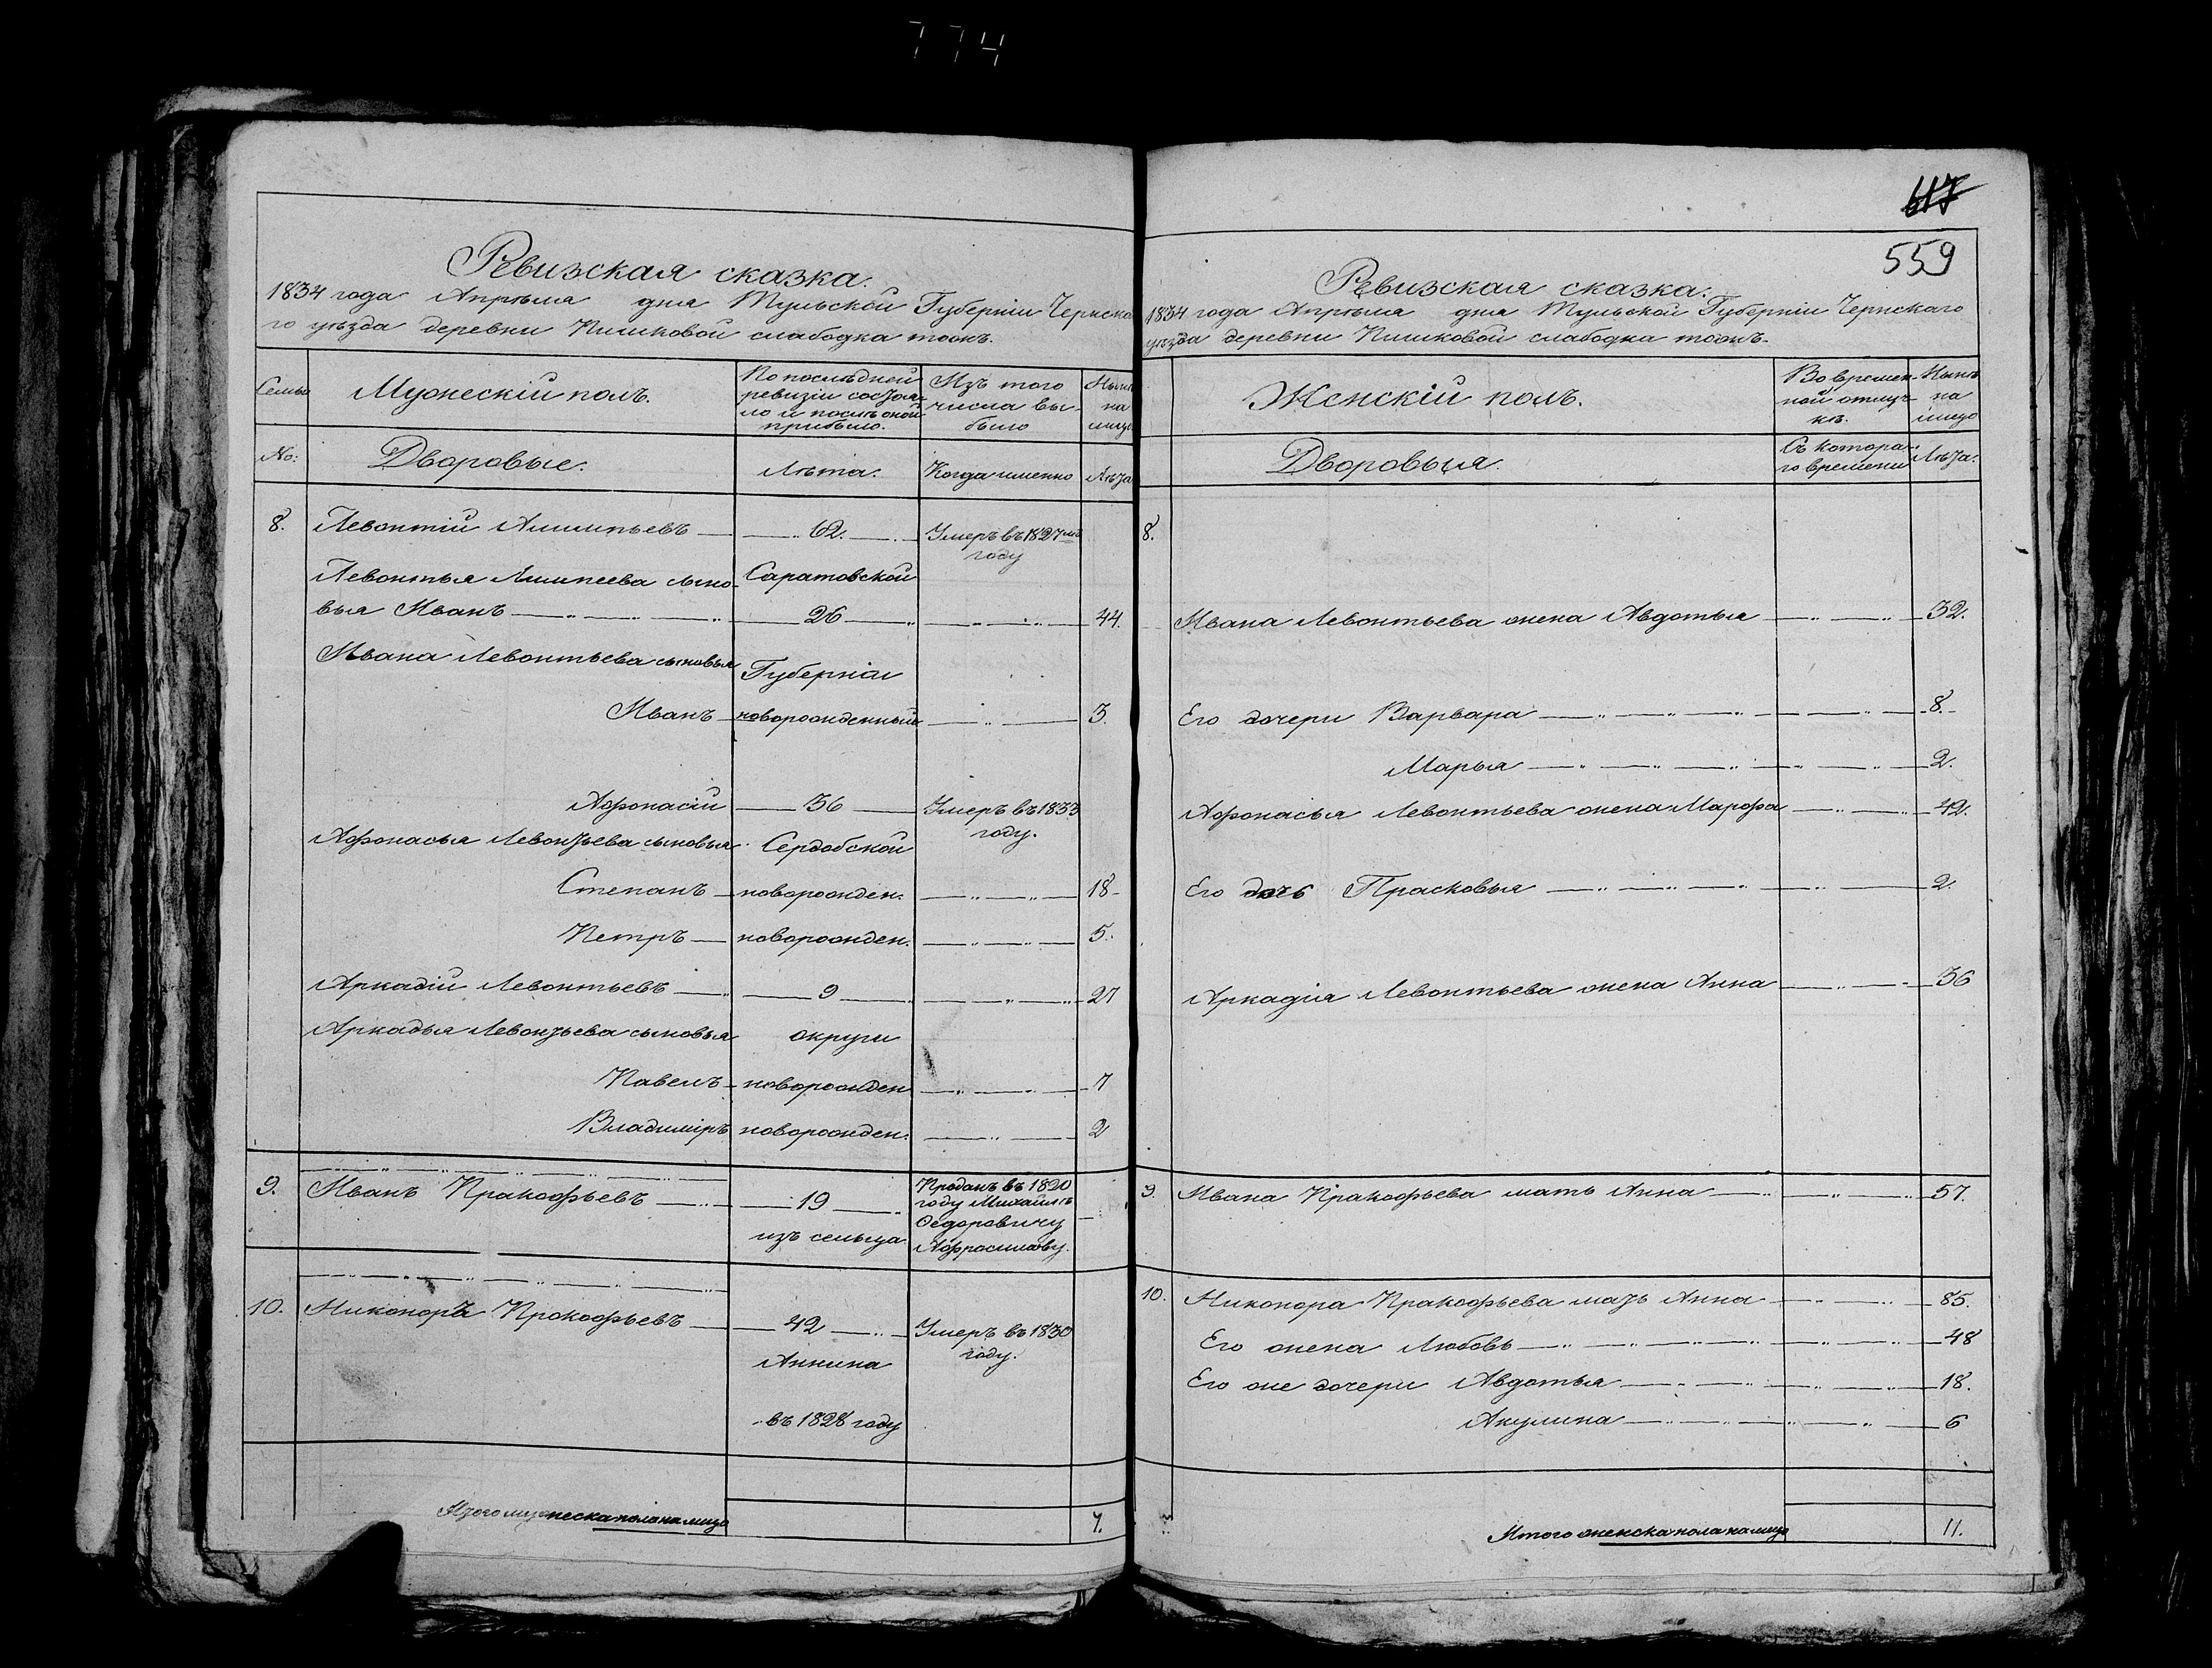 774
Ревизская сказка.
1834 года Апрѣля дня Тульской Губерніи Чернска
го уѣзда деревни Пишковой слабодка тожъ.
Семьи
Мужескій полъ.
По послѣдней
ревизіи состоя-
ло и послѣ оной
прибыло.
Изъ того
числа вы-
было
Нынѣ
на
лицо
№:
Дворовые.
Лѣта.
Когда именно
Лѣта
8. Левонтій Алимпьевъ 62. Умеръ въ 1827мъ
году
Левонтья Алимпеева сыно- Саратовской
вья Иванъ 26 44.
Ивана Левонтьева сыновья Губерніи
Иванъ новорожденный 3.
Афонасій 36 Умеръ въ 1833
году.
Афонасья Левонтьева сыновья Сердобской
Степанъ новорожден. 18
Петръ новорожден. 5.
Аркадій Левонтьевъ 9 27
Аркадья Левонтьева сыновья округи
Павелъ новорожден 7
Владиміръ новорожден. 2
9. Иванъ Пракофьевъ 19 Проданъ въ 1820
году Михайлѣ
Федоровичу
Афросимову.
изъ сельца
10. Никоноръ Прокофьевъ 42 Умеръ въ 1830
году.
Аннина
въ 1828 году
Итого мужеска пола на лицо 7.
617
559
Ревизская сказка.
1834 года Апрѣля дня Тульской Губерніи Чернскаго
уѣзда деревни Пишковой слабодка тожъ.
Женскій полъ.
Во времен-
ной отлуч-
кѣ.
Нынѣ
на
лицо
Дворовыя.
Съ котора-
го времени
Лѣта.
8.
Ивана Левонтьева жена Авдотья 32.
Его дочери Варвара 8.
Марья 2.
Афонасья Левонтьева жена Марфа 42.
Его дочь Прасковья 2.
Аркадія Левонтьева жена Анна 36
9. Ивана Пракофьева мать Анна 57.
10. Никонора Пракофьева мать Анна 85.
Его жена Любовь 48
Его же дочери Авдотья 18.
Акулина 6
Итого женска пола на лицо 11.